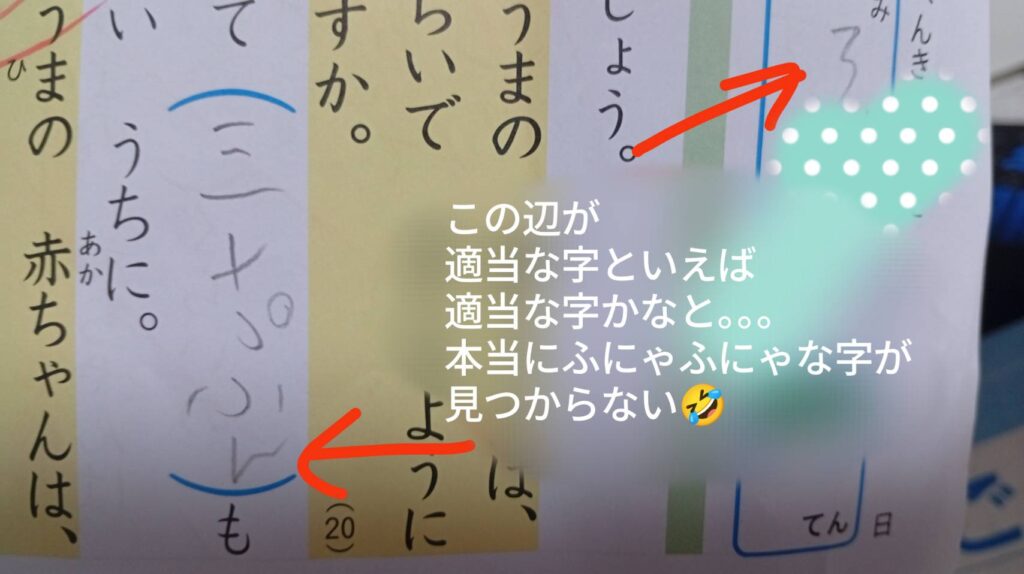 んき
み
ろ
てん
日
しょう。
うまの
は、
らいで
ように
すか。
(20)
て(三十ぷん)も
い うちに。
うまの 赤ちゃんは、
あか
ひ
この辺が
適当な字といえば
適当な字かなと。。。
本当にふにゃふにゃな字が
見つからない🤣